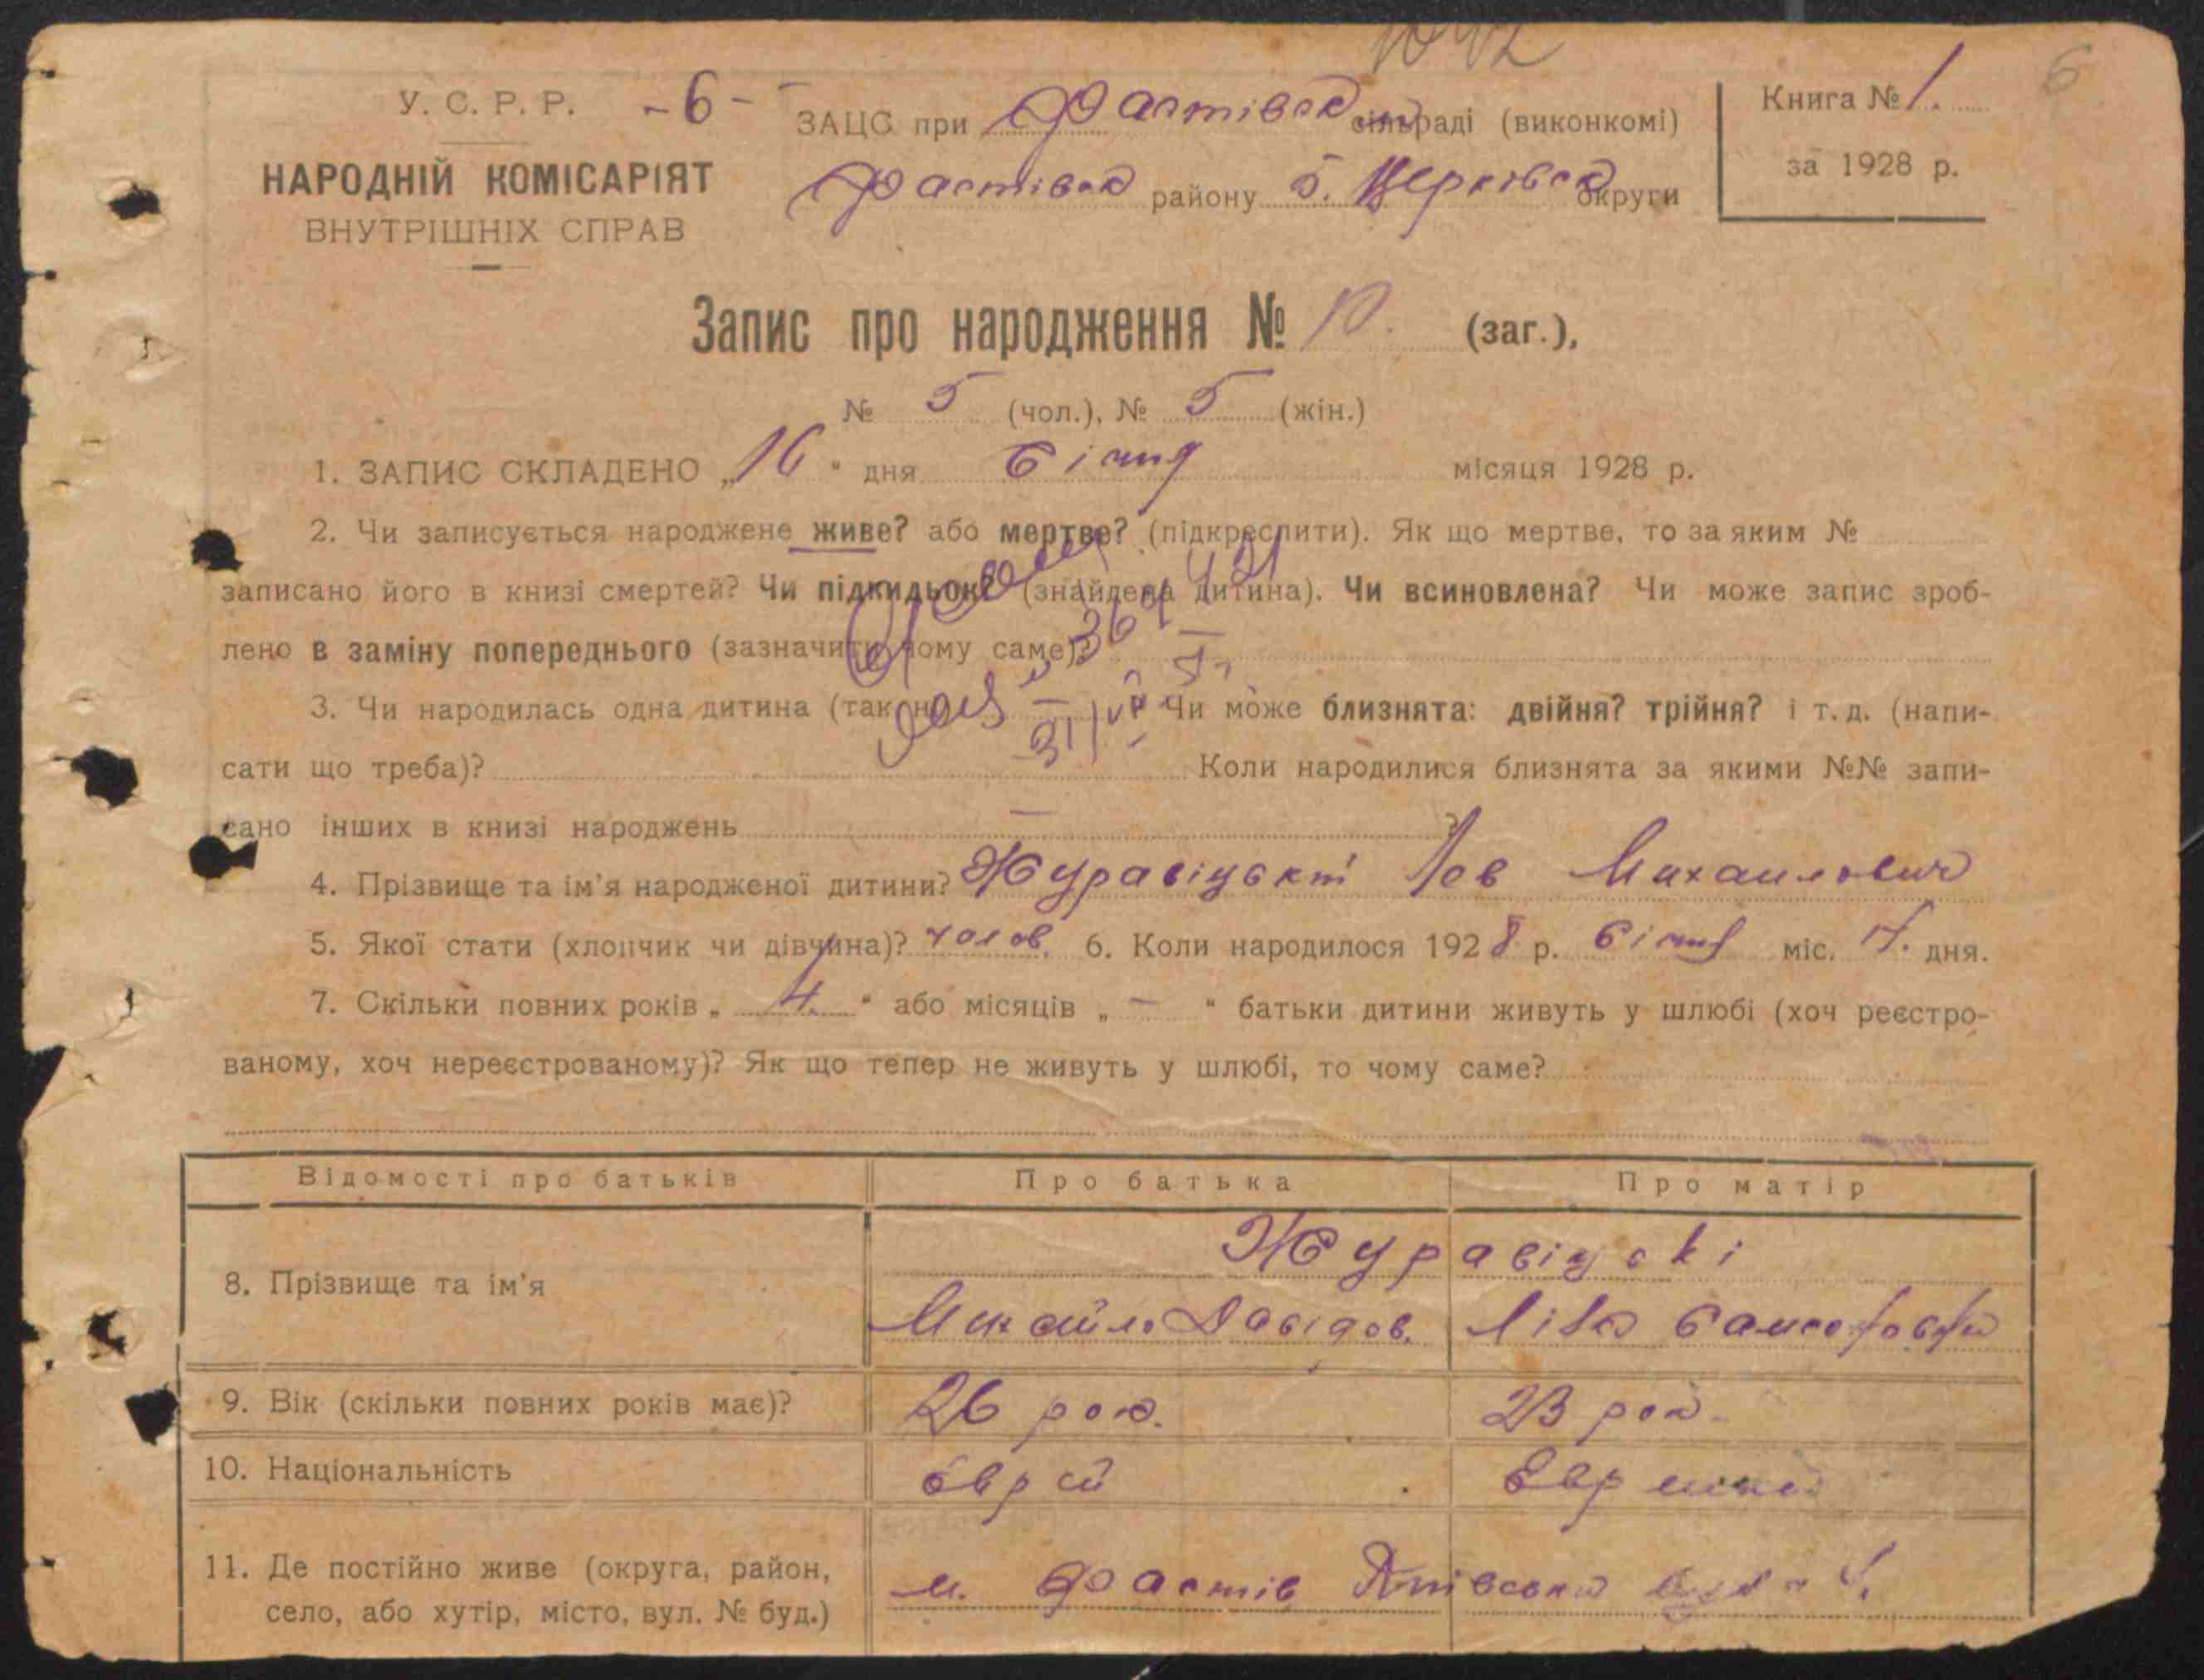 6
У. С. Р. Р. - 6 - ЗАЦС при Фастівськ сільраді (виконкомі) Книга № 1.
НАРОДНІЙ КОМІСАРІЯТ Фастівськ району Б. Церківськ округи за 1928 р.
ВНУТРІШНІХ СПРАВ
Запис про народження № 10. (заг.),
№ 5 (чол.), № 5 (жін.)
1. ЗАПИС СКЛАДЕНО „16“ дня Січня місяця 1928 р.
2. Чи записується народжене живе? або мертве? (підкреслити). Як що мертве, то за яким №
записано його в книзі смертей? Чи підкидьок? (знайдена дитина). Чи всиновлена? Чи може запис зроб-
лено в заміну попереднього (зазначити чому саме)?
3. Чи народилась одна дитина (так, ні) Чи може близнята: двійня? трійня? і т. д. (напи-
сати що треба)? Коли народилися близнята за якими №№ запи-
сано інших в книзі народжень — ?
4. Прізвище та ім'я народженої дитини? Журавіцькі Лев Михаилович
5. Якої стати (хлопчик чи дівчина)? чолов. 6. Коли народилося 1928 р. січня міс. дня.
7. Скільки повних років „ 4. “ або місяців „ — “ батьки дитини живуть у шлюбі (хоч реєстро-
ваному, хоч нереєстрованому)? Як що тепер не живуть у шлюбі, то чому саме?
Відомості про батьків Про батька Про матір
Журавіцькі
8. Прізвище та ім'я Михайло Давідов. Самсоновна
9. Вік (скільки повних років має)? 26 рок. 23 рок.
10. Національність Єврей Єврейка
11. Де постійно живе (округа, район, м. Фастів
село, або хутір, місто, вул. № буд.)